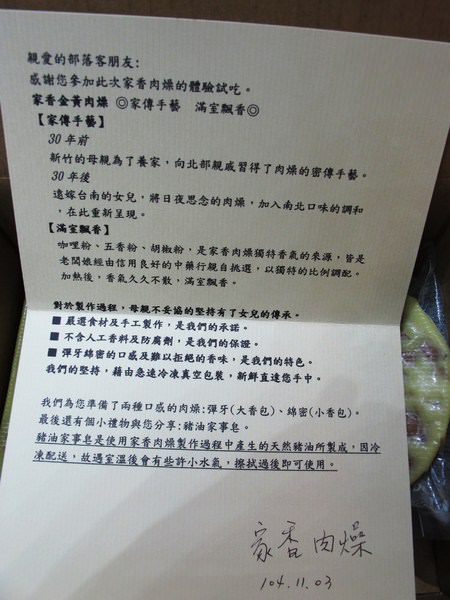 親愛的部落客朋友:
感謝您參加此次家香肉燥的體驗試吃。
家香金黃肉燥 ◎家傳手藝 滿室飄香◎
【家傳手藝】
30年前
新竹的母親為了養家，向北部親戚習得了肉燥的密傳手藝。
30年後
遠嫁台南的女兒，將日夜思念的肉燥，加入南北口味的調和
，在此重新呈現。
【滿室飄香】
咖哩粉、五香粉、胡椒粉，是家香肉燥獨特香氣的來源，皆是
老闆娘經由信用良好的中藥行親自挑選，以獨特的比例調配。
加熱後，香氣久久不散，滿室飄香。
對於製作過程，母親不妥協的堅持有了女兒的傳承。
■ 嚴選食材及手工製作，是我們的承諾。
■ 不含人工香料及防腐劑，是我們的保證。
■ 彈牙綿密的口感及難以拒絕的香味，是我們的特色。
我們的堅持，藉由急速冷凍真空包裝，新鮮直達您手中。
我們為您準備了兩種口感的肉燥:彈牙(大香包)、綿密(小香包)。
最後還有個小禮物與您分享:豬油家事皂。
豬油家事皂是使用家香肉燥製作過程中產生的天然豬油所製成，因冷
凍配送，故遇室溫後會有些許小水氣，擦拭過後即可使用。
家香肉燥
104.11.03